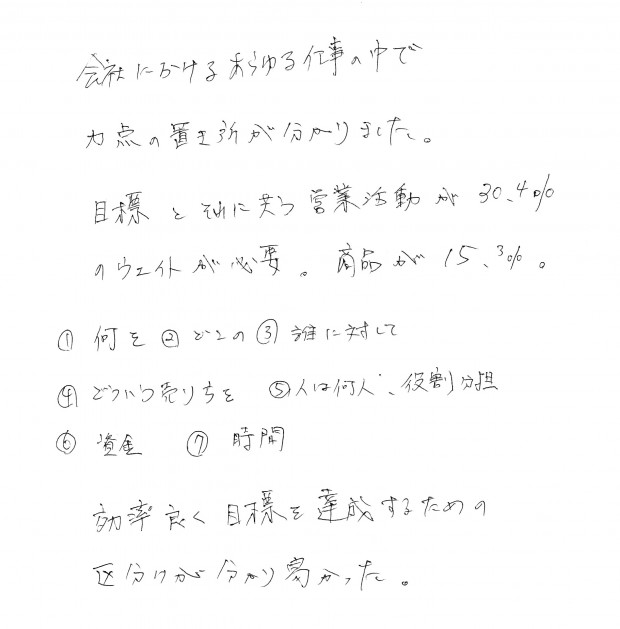 会社におけるあらゆる仕事の中で
力点の置き所が分かりました。
目標とそれに伴う営業活動が30.4%
のウェイトが必要。商品が15.3%。
① 何を ② どこの ③ 誰に対して
④ どういう売り方を ⑤ 人は何人、役割分担
⑥ 資金 ⑦ 時間
効率良く目標を達成するための
区分けが分かり易かった。